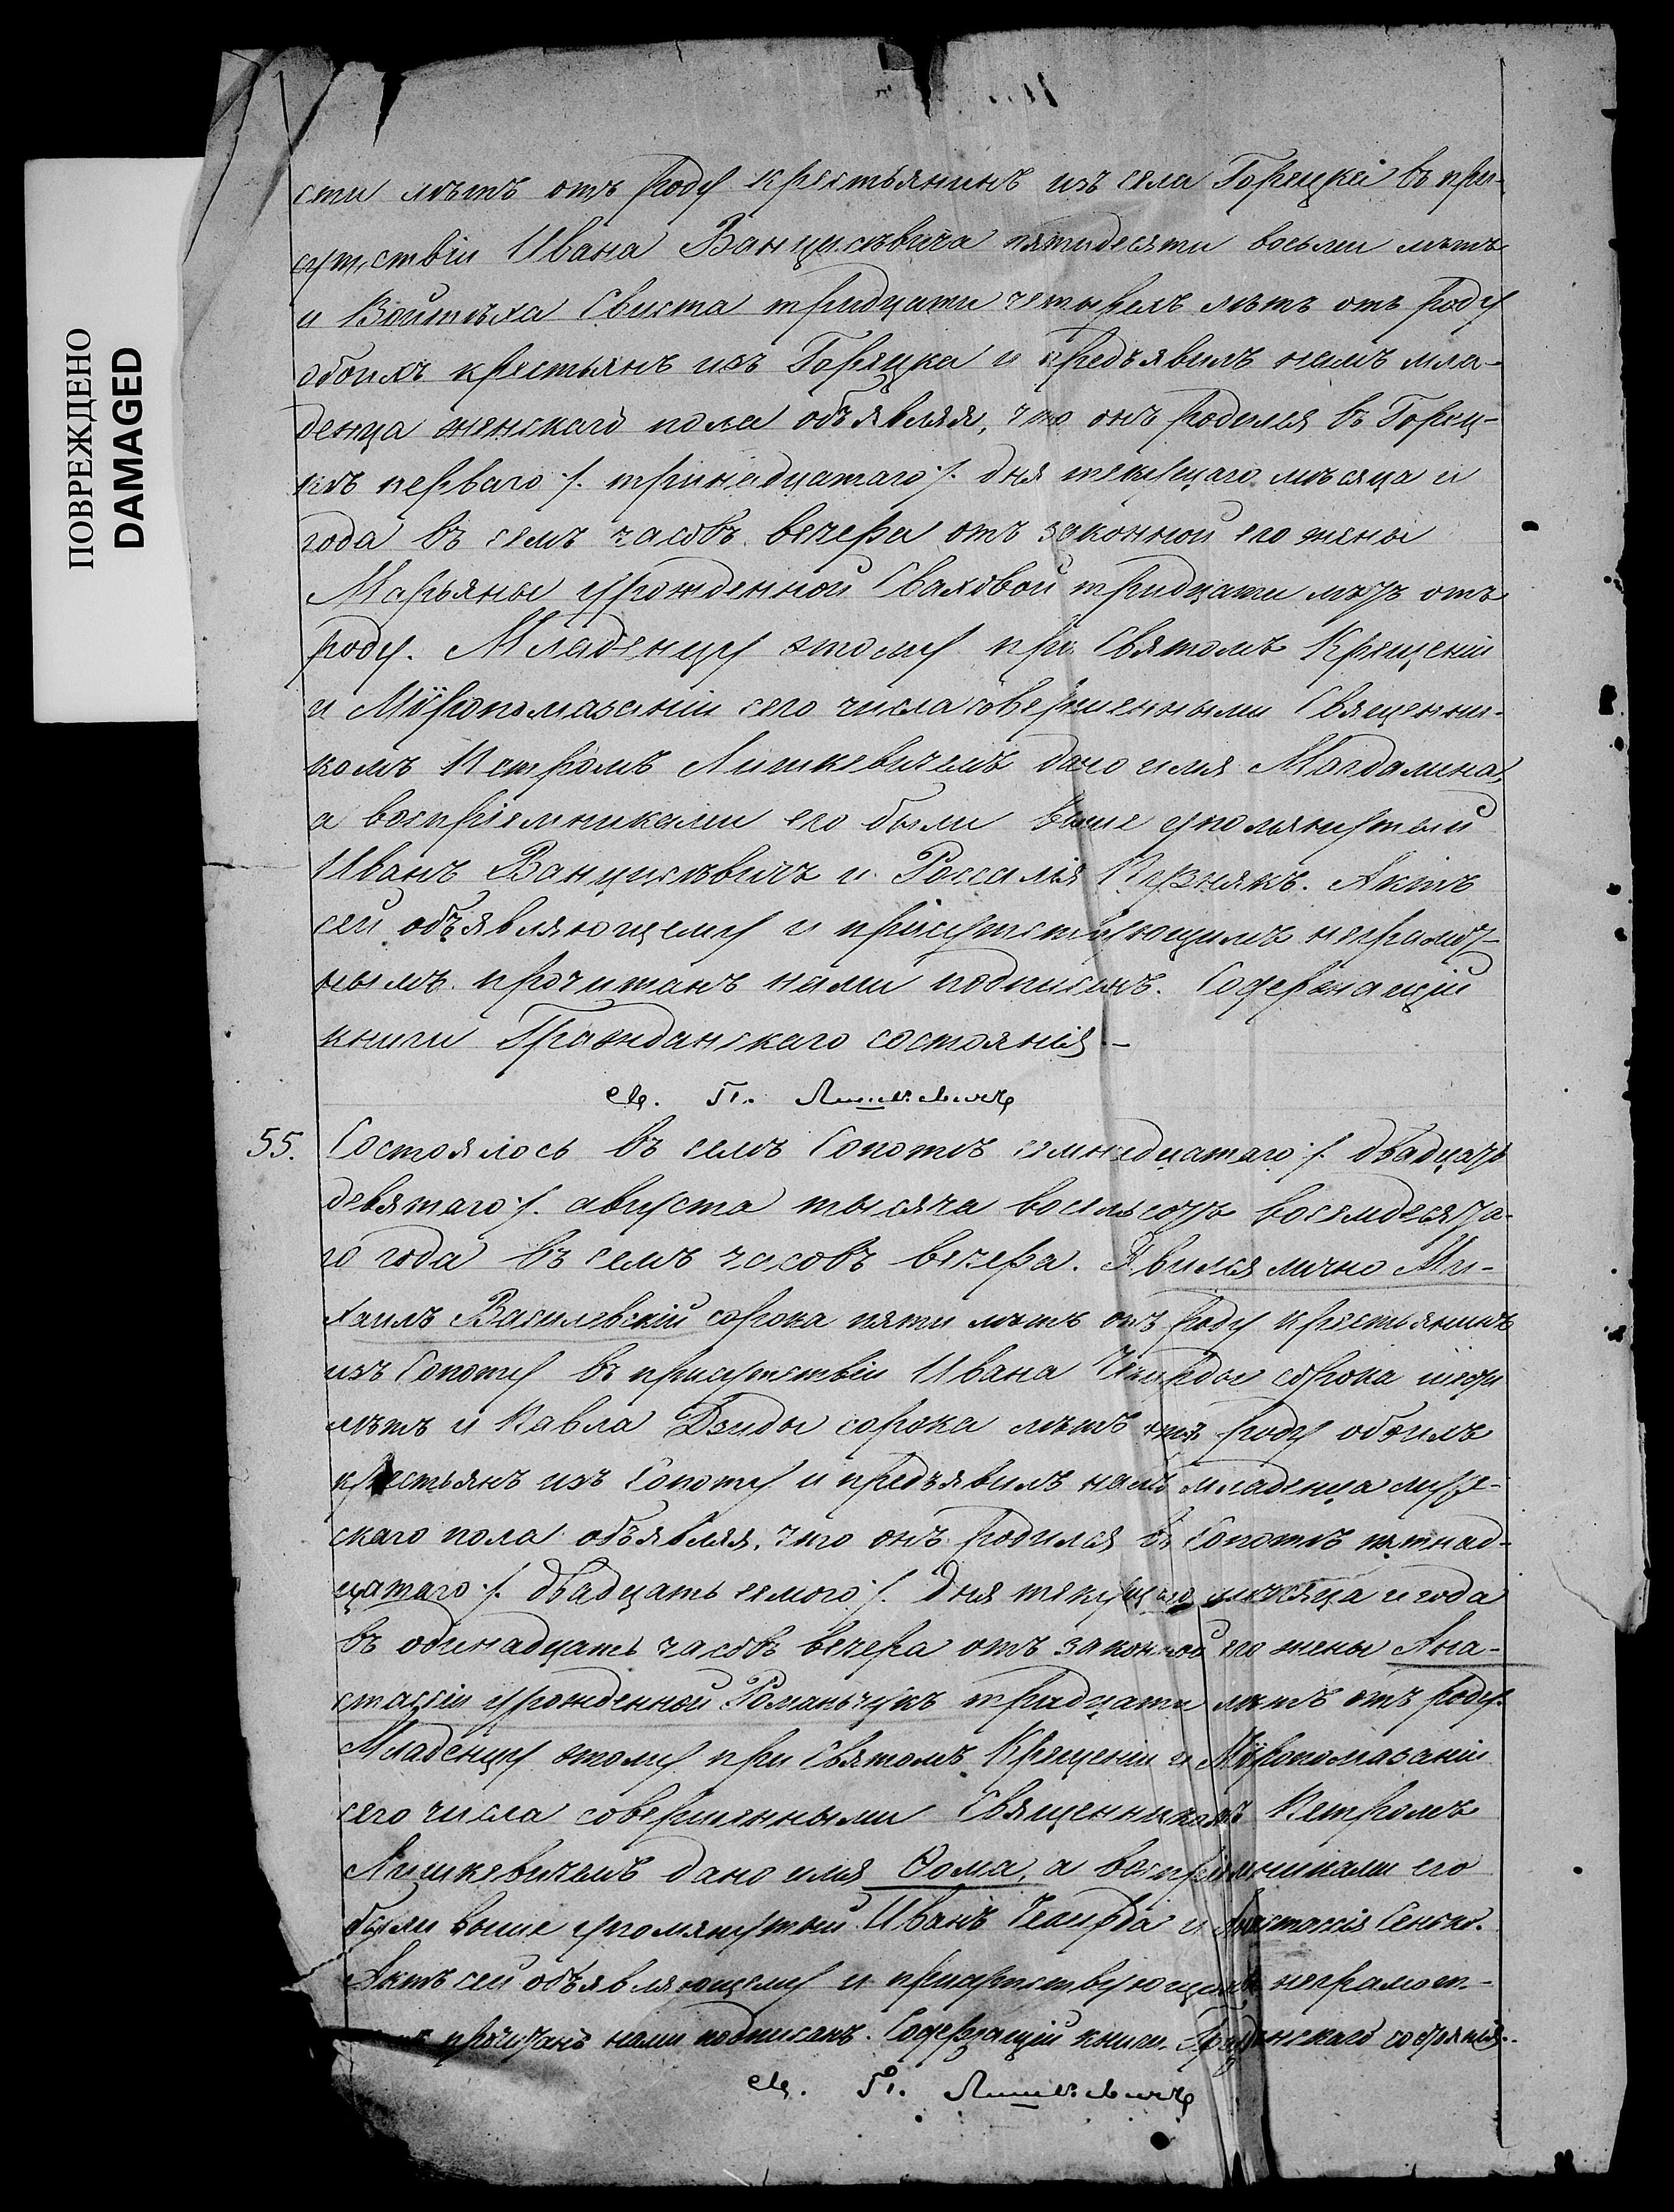 ПОВРЕЖДЕНО
DAMAGED
сти лѣтъ отъ роду крестьянинъ изъ села Горецка въ при-
сутствіи Ивана Ванцисѣвича пятидесяти восьми лѣтъ
и Войтѣха Свиста тридцати четырехъ лѣтъ отъ роду
обоихъ крестьянъ изъ Горецка и предъявилъ намъ мла-
денца женскаго пола объявляя, что онъ родился въ Горец-
кѣ перваго /. тринадцатаго /. дня текущаго мѣсяца и
года въ семь часовъ вечера отъ законной его жены
Марьяны урожденной Сваховой тридцати лѣтъ отъ
роду. Младенцу этому при Святомъ Крещеніи
и Мѵропомазаніи сего числа совершенными Священни-
комъ Петромъ Лишкевичемъ дано имя Магдалина,
а воспріемниками его были выше упомянутый
Иванъ Ванцисѣвичъ и Россалія Кузнякъ. Актъ
сей объявляющему и присутствующимъ неграмот-
нымъ прочитанъ нами подписанъ. Содержащій
книги Гражданскаго состоянія –
Св. П. Лишкевичъ
55. Состоялось въ селѣ Сопотѣ семнадцатаго /. двадцать
девятаго /. августа тысяча восемьсотъ восемдесята-
го года въ семь часовъ вечера. Явился лично Ми-
хаилъ Василевскій сорока пяти лѣтъ отъ роду крестьянинъ
изъ Сопоту въ присутствіи Ивана Чемирды сорока
лѣтъ и Павла Дзиды сорока лѣтъ отъ роду обоихъ
крестьянъ изъ Сопоту и предъявилъ намъ младенца муже-
скаго пола объявляя, что онъ родился въ Сопотѣ пятнад-
цатаго /. двадцать семого /. дня текущаго мѣсяца и года
въ одинадцать часовъ вечера отъ законной его жены Ана-
стасіи урожденной Романьчукъ тридцати лѣтъ отъ роду.
Младенцу этому при Святомъ Крещеніи и Мѵропомазаніи
сего числа совершенными Священникомъ Петромъ
Лишкевичемъ дано имя Ѳома, а воспріемниками его
были выше упомянутый Иванъ Чемирда и Анастассія Сенько.
Актъ сей объявляющему и присутствующимъ неграмот-
прочитанъ нами подписанъ. Содержащій книги Гражданскаго состоянія.
Св. П. Лишкевичъ